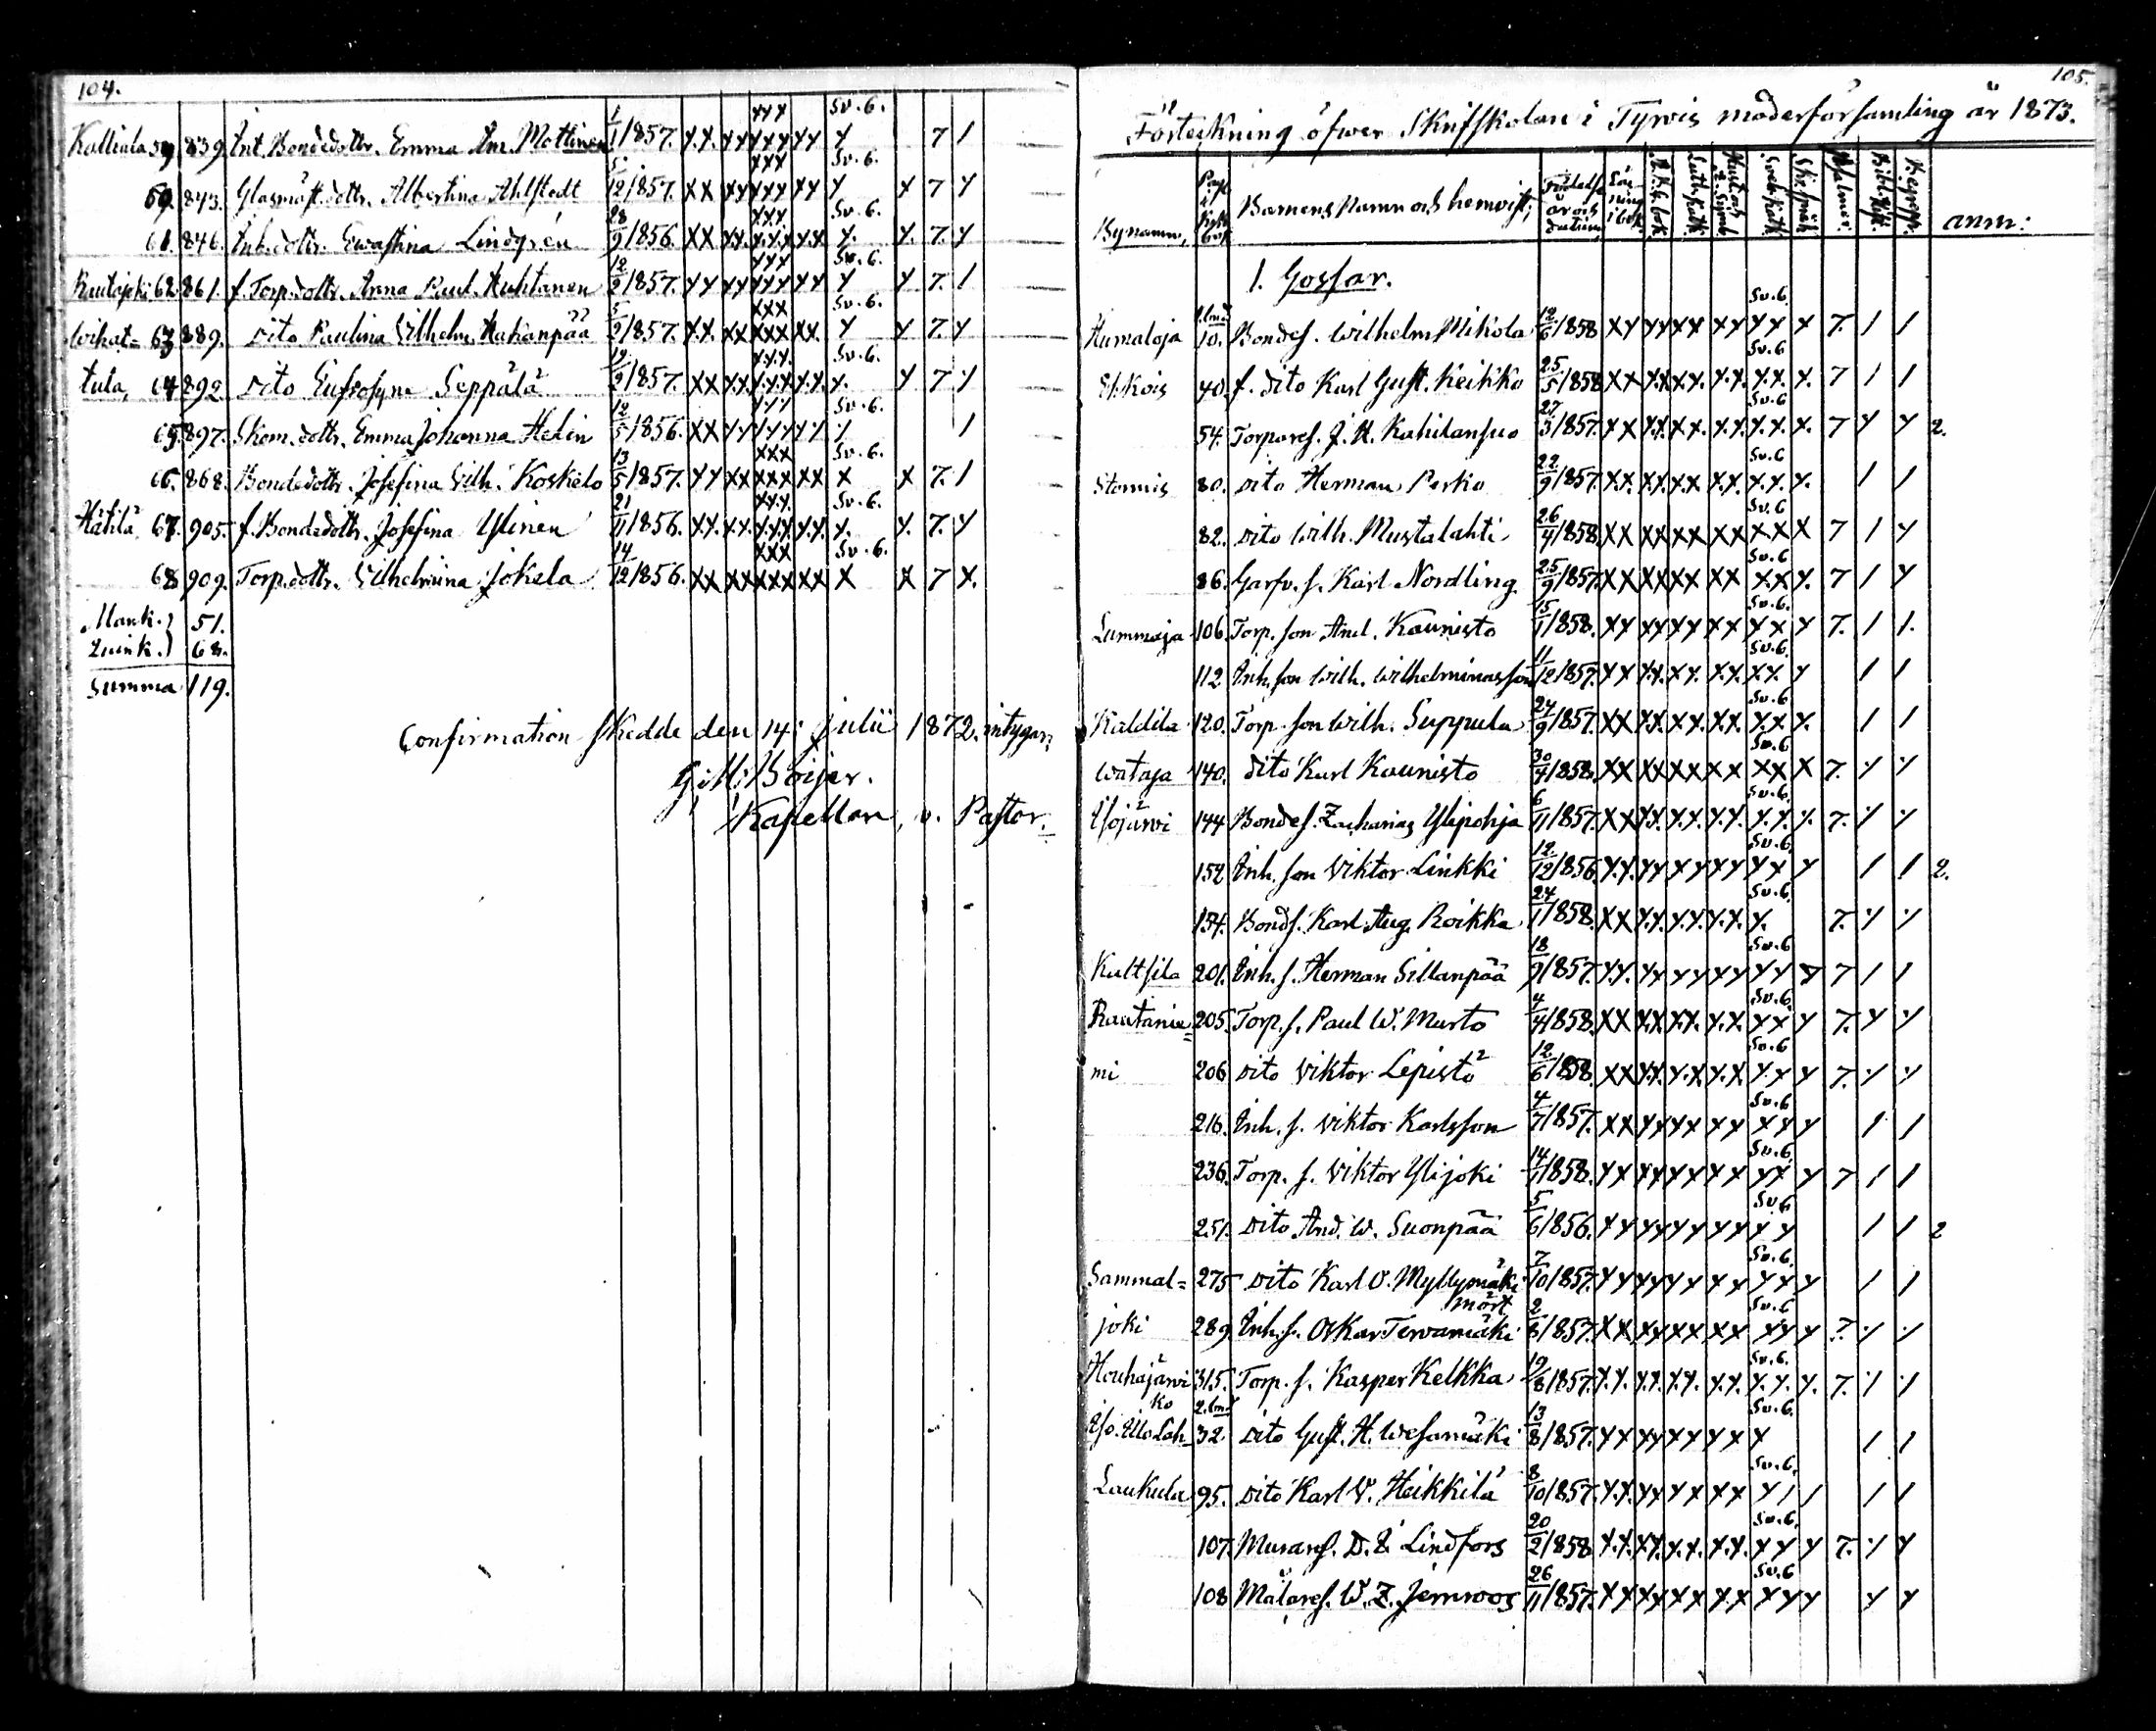 104.
Kalliala 59. 839. Inh. Bondedottr. Emma Am. Mattinen 1/1 1857. x.x. xx xxx xx Sv. 6. x 7 1
60. 843. Glasmäst. dottr. Albertina Ahlstedt 5/12 1857. xx xx xxx xx Sv. 6. x x 7 x
61. 846. Inh. dottr. Ewastina Lindgrén 28/9 1856. xx x.x. x.x.x x.x. Sv. 6. x. x. 7. x
Rautajoki 62. 861. f. Torp. dottr. Anna Paul. Huhtanen 12/2 1857. xx xx xxx xx Sv. 6. x x 7. 1
Wihat= 63. 889. dito Paulina Vilhelm. Hakanpää 5/2 1857. x.x. xx xxx xx. Sv. 6. x x 7. x
tula, 64 892. dito Eufrosyne Seppälä 19/2 1857. xx x.x. x.x.x x.x. Sv. 6. x. x 7 x
65. 897. Skom. dottr. Emma Johanna Helin 12/5 1856. xx xx xxx xx Sv. 6. x 1
66. 868. Bondedottr. Josefina Vilh. Koskelo 13/5 1857. xx xx xxx xx Sv. 6. x x 7. 1
Hählä 67. 905. f. Bondedottr. Josefina Ylinen 21/11 1856. x.x. x.x. x.x.x x.x. Sv. 6. x. x. 7. x
68 909. Torp. dottr. Vilhelmina Jokela 14/12 1856. xx xx xxx xx Sv. 6. x x 7 x.
Mank.) 51.
Quink.) 68.
Summa 119.
Confirmation skedde den 14: julii 1872. intygar;
G. M. Boijer.
Kapellan, v. Pastor.
105.
Förteckning öfwer Skriftskolan i Tyrvis moderförsamling år 1873.
Bynamn, Barnens Namn och hemvist; anm:
1. Gossar.
Humaloja 10. Bondes. Wilhelm Mikola 12/6 1858 xx xx xx xx Sv. 6 xx x 7. 1 1
Ekkois 40. f. dito Karl Gust. Keikko 25/5 1858 xx x.x xx. x.x. Sv. 6 x.x. x. 7 1 1
54. Torpares. J. H. Kahilansuo 27/3 1857. xx x.x. xx. x.x. Sv. 6 x.x. x. 7 x x 2.
Stormis 80. dito Herman Perko 22/9 1857. x.x. x.x. xx x.x. Sv. 6 x.x. x. 1 1
82. dito Wilh. Mustalahti 26/4 1858. xx xx xx xx Sv. 6 xx x 7 1 x
86. Garfv. s. Karl Nordling 25/9 1857. xx xx xx xx Sv. 6 x.x x. 7 1 x
Lummaja 106. Torp. son And. Kaunisto 15/1 1858. xx xx xx xx Sv. 6. xx x 7. 1 1.
112 Inh. son Wilh. Wilhelminasson 11/12 1857. xx x.x. xx. x.x. Sv. 6. xx. x 1 1
Kaldila 120. Torp. son Wilh. Suppula 24/9 1857. xx x.x. x.x. x.x. Sv. 6 x.x x. 1 1
Wataja 140. dito Karl Kaunisto 30/4 1858. xx xx xx xx Sv. 6 xx x 7. x x
Ylojärvi 144 Bondes. Zacharias Ylipohja 6/11 1857. xx x.x. x.x. x.x. Sv. 6. x.x. x. 7. x x
152 Inh. son Viktor Linkki 12/12 1856. x.x. xx xx xx Sv. 6. xx x 1 1 2.
154. Bonds. Karl Aug. Roikka 24/1 1858. xx x.x. x.x. x.x. Sv. 6. x. 7. x x
Kultsila 201. Inh. s. Herman Sillanpää 18/9 1857. x.x. xx xx xx Sv. 6 xx x 7 1 1
Rautanie= 205. Torp. s. Paul W. Murto 4/4 1858. xx x.x. x.x. x.x. Sv. 6. xx x 7. x x
mi 206 dito Viktor Lepistö 12/6 1858. xx x.x. x.x x.x Sv. 6 x.x x 7. x x
216. Inh. s. Viktor Karlsson 4/7 1857. xx xx xx xx Sv. 6 xx x 1 1
236. Torp. s. Viktor Ylijoki 14/1 1858. xx xx xx xx Sv. 6. xx x 7 1 1
251. dito And. W. Suonpää 5/6 1856. xx xx xx xx Sv. 6 xx 1 1 2
Sammal= 275 dito Karl O. Myllymäki 7/10 1857. xx xx xx xx Sv. 6. xx x 1 1
joki 289. Inh. s. Oskar Tervamäki 2/8 1857. xx xx xx xx Sv. 6 xx x 7. x x
Houhajärvi 315. Torp. s. Kasper Kelkka 19/8 1857. x.x. x.x. x.x. x.x. Sv. 6. x.x. x. 7. x x
32. dito Gust. H. Wesamäki 13/8 1857. xx xx xx xx Sv. 6. x 1 1
Laukula 95. dito Karl V. Heikkilä 8/10 1857. x.x. xx xx xx Sv. 6. x1 1 1 1
107. Murares. D. E. Lindfors 20/2 1858 x.x. xx. x.x. x.x. Sv. 6. xx x 7. x x
108 Målares. W. Z. Jernroos 26/11 1857. xx xx xx x.x Sv. 6 xx x x x